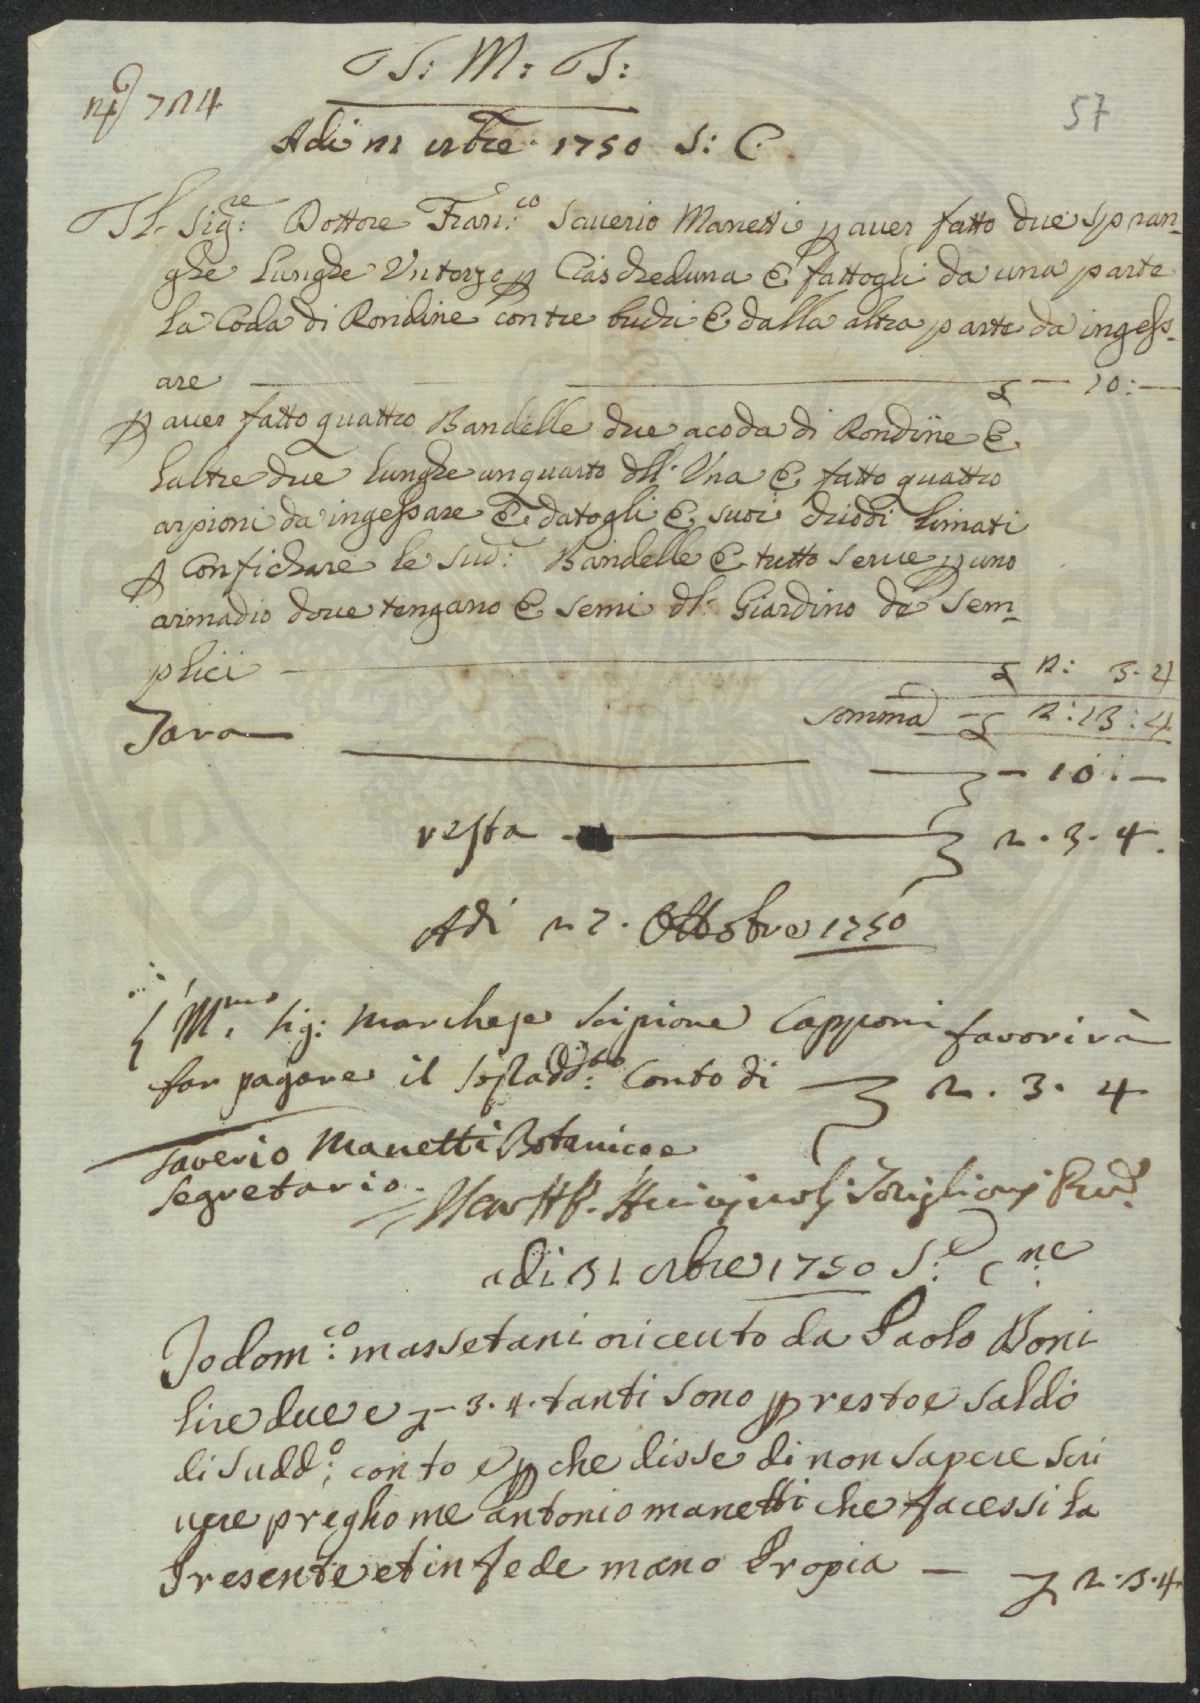 J: M: J:
n.º 724
57
Adi 21 8bre 1750 S: C.
Il Sig.re Dottore Fran.co Saverio Manetti p aver fatto due spran-
ghe Lunghe Un terzo p Cascheduna e fattogli da una parte
La Coda di Rondine con tre buchi e dalla altra parte da ingess-
are — £ — 10: —
p aver fatto quattro Bandelle due a coda di Rondine e
Laltre due Lunghe un quarto dll' Una e fatto quattro
arpioni da ingessare e datogli e suoi chiodi Limati
p Confichare le Sud: Bandelle e tutto serve p uno
armadio dove tengano e semi dl: Giardino de Sem-
plici — £ 2: 3. 4
Somma — £ 2: 13: 4
Tara — 10: —
resta — 2. 3. 4.
Adi 27. Ottobre 1750
L'Ill.mo Sig: Marchese Scipione Capponi favorirà
far pagare il sopradd.to Conto di 2. 3. 4
Saverio Manetti Botanico e
Segretario.
adi 31 8bre 1750 S: C.ne
Io dom:co massetani o riceuto da Paolo Boni
lire due e — 3. 4. tanti sono p resto e saldo
di sudd:o conto e p che disse di non sapere scri
vere pregho me Antonio manetti che facessi la
Presente et in fede mano Propia — 2. 3. 4